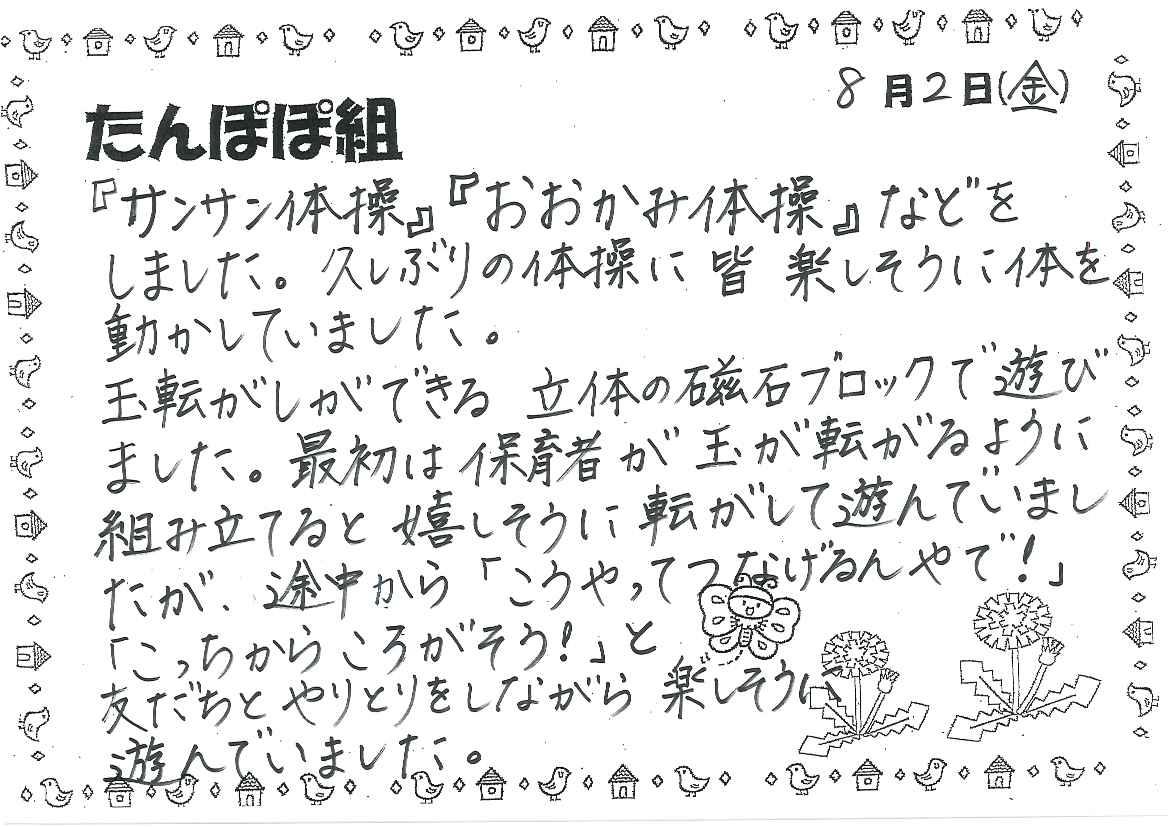 8月2日(金)
たんぽぽ組
『サンサン体操』『おおかみ体操』などを
しました。久しぶりの体操に皆 楽しそうに体を
動かしていました。
玉転がしができる 立体の磁石ブロックで遊び
ました。最初は保育者が玉が転がるように
組み立てると嬉しそうに転がして遊んでいまし
たが、途中から「こうやってつなげるんやで!」
「こっちからころがそう!」と
友だちとやりとりをしながら 楽しそうに
遊んでいました。